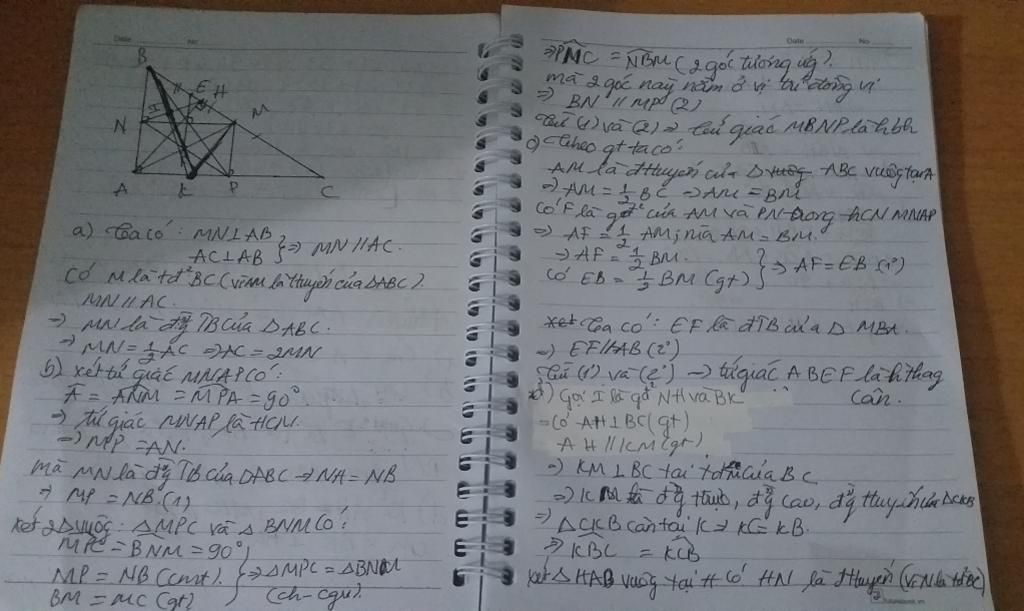 Date No
B
E
H
I
N
M
A
K
P
C
a) Ta có: MN⊥AB
AC⊥AB } ⇒ MN // AC.
Có M là tđ² BC (vì AM là tuyến của ΔABC).
MN // AC.
⇒ MN là đg̃ TB của ΔABC.
⇒ MN = 1/2 AC ⇒ AC = 2MN
b) xét tứ giác MNAP có:
A = ANM = MPA = 90°
⇒ tứ giác MNAP là HCN.
⇒ MP = AN.
mà MN là đg̃ TB của ΔABC → NA = NB
⇒ MP = NB (1)
xét 2Δ vuôg: ΔMPC và ΔBNM có:
MPC = BNM = 90°
MP = NB (cmt) } ⇒ ΔMPC = ΔBNM
BM = MC (gt) (ch-cgv).
Date No
⇒ PMC = NBM (2 góc tương ứg).
mà 2 góc này nằm ở vị trí đồng vị
⇒ BN // MP (2)
Từ (1) và (2) ⇒ tứ giác MBNP là hbh
c) Theo gt ta có:
AM là đ tuyến của Δ vuôg ABC vuông tại A
⇒ AM = 1/2 BC ⇒ AM = BM
có F là gđ² của AM và PN trong hCN MNAP
⇒ AF = 1/2 AM; mà AM = BM.
⇒ AF = 1/2 BM.
Có EB = 1/2 BM (gt) } ⇒ AF = EB (1')
Ta có: EF là đTB của Δ MBA.
⇒ EF // AB (2')
Từ (1') và (2') → tứ giác ABEF là hthag
cân.
d) Gọi I là gđ² NH và BK
Có AH⊥BC (gt)
AH // KM (gt)
⇒ KM ⊥ BC tại tđ M của BC
⇒ KM là đg̃ tđ, đg̃ cao, đg̃ tuyến của ΔCKB
⇒ ΔCKB cân tại K ⇒ KC = KB.
⇒ KBC = KCB
xét ΔHAB vuôg tại H có HN là đ tuyến (vì N là tđ²BC)